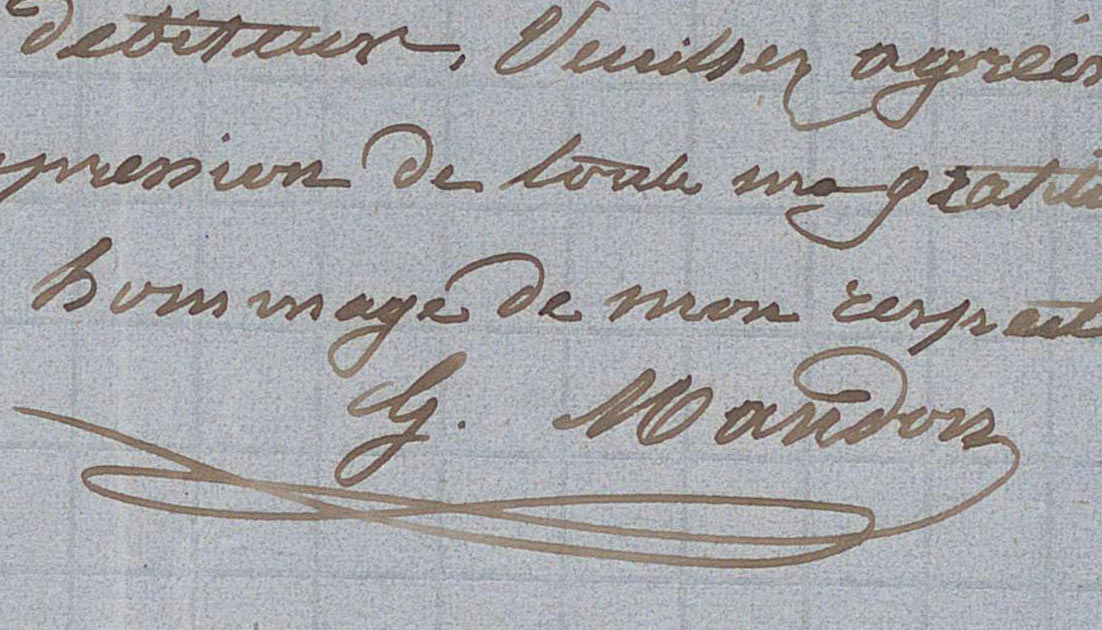 debiteur. Veuillez agréer
pression de toute ma gratitu
hommage de mon respect
G. Mandon